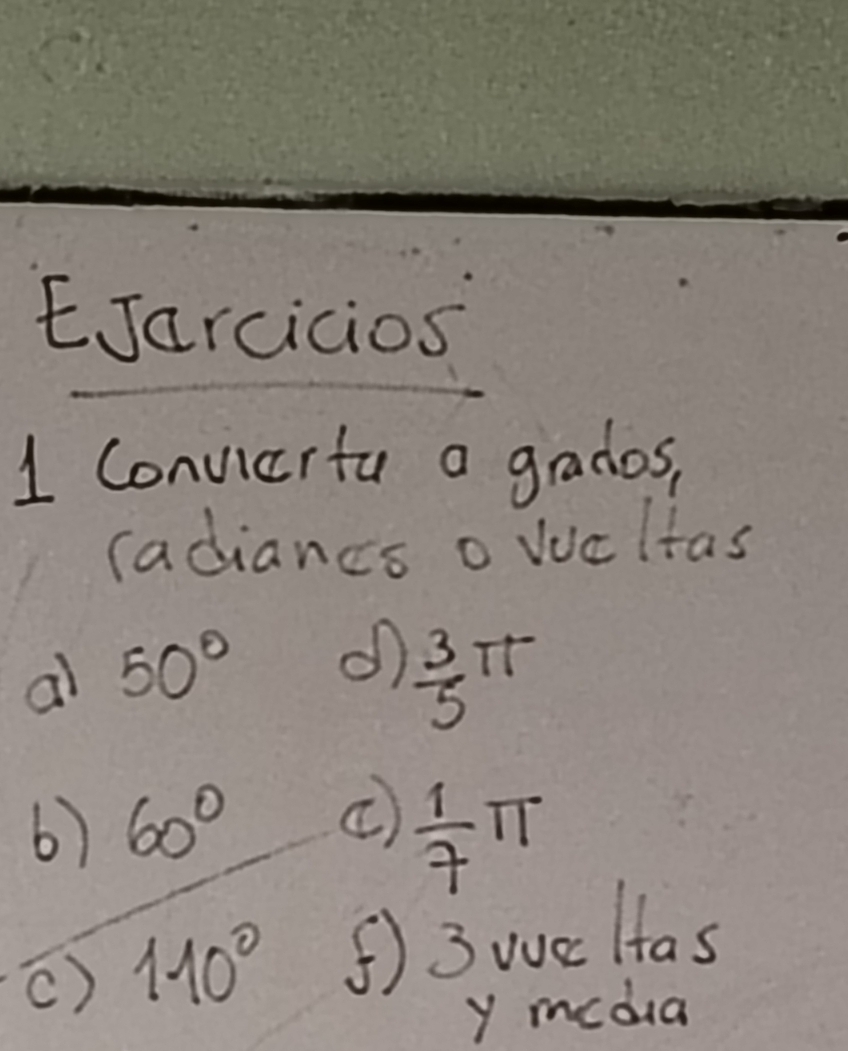 Ejercicios
1 Convierta a grados,
radianes o vueltas
a) 50° d) 3/5 π
b) 60° e) 1/7 π
c) 110° f) 3 vueltas
y media